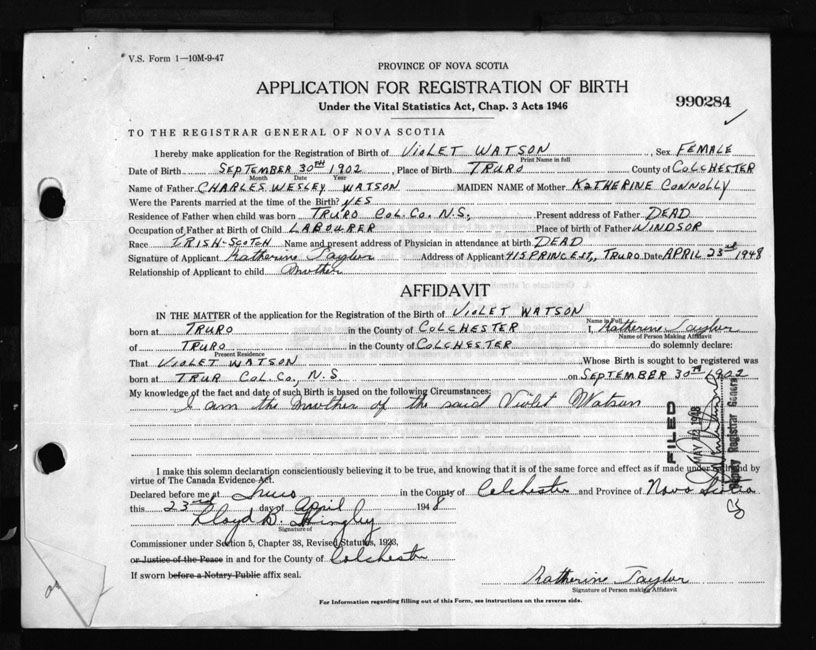 V.S. Form 1—10M-9-47
PROVINCE OF NOVA SCOTIA
APPLICATION FOR REGISTRATION OF BIRTH
Under the Vital Statistics Act, Chap. 3 Acts 1946
990284
TO THE REGISTRAR GENERAL OF NOVA SCOTIA
I hereby make application for the Registration of Birth of VIOLET WATSON, Sex FEMALE
Print Name in full
Date of Birth SEPTEMBER 30TH 1902, Place of Birth TRURO County of COLCHESTER
Month Date Year
Name of Father CHARLES WESLEY WATSON MAIDEN NAME of Mother KATHERINE CONNOLLY
Were the Parents married at the time of the Birth? YES
Residence of Father when child was born TRURO COL. CO. N.S. Present address of Father DEAD
Occupation of Father at Birth of Child LABOURER Place of birth of Father WINDSOR
Race IRISH-SCOTCH Name and present address of Physician in attendance at birth DEAD
Signature of Applicant Katherine Taylor Address of Applicant 415 PRINCE ST., TRURO Date APRIL 23rd 1948
Relationship of Applicant to child Mother
AFFIDAVIT
IN THE MATTER of the application for the Registration of the Birth of VIOLET WATSON
Name in Full
born at TRURO in the County of COLCHESTER I, Katherine Taylor
Name of Person Making Affidavit
of TRURO in the County of COLCHESTER do solemnly declare:
Present Residence
That VIOLET WATSON Whose Birth is sought to be registered was
born at TRUR COL. CO., N.S. on SEPTEMBER 30TH 1902
My knowledge of the fact and date of such Birth is based on the following Circumstances:
I am the Mother of the said Violet Watson
FILED
MAY 12 1948
Deputy Registrar General
I make this solemn declaration conscientiously believing it to be true, and knowing that it is of the same force and effect as if made under oath and by
virtue of The Canada Evidence Act.
Declared before me at Truro in the County of Colchester and Province of Nova Scotia
this 23rd day of April 1948
Lloyd D. Hingley
Signature of
Commissioner under Section 5, Chapter 38, Revised Statutes, 1923,
or Justice of the Peace in and for the County of Colchester
If sworn before a Notary Public affix seal.
Katherine Taylor
Signature of Person making Affidavit
For Information regarding filling out of this Form, see instructions on the reverse side.